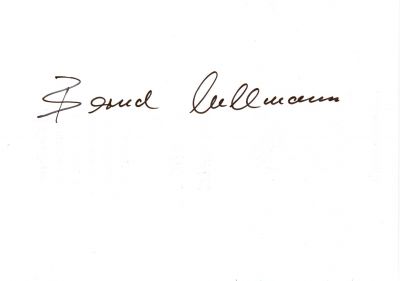 Bernd Cullmann